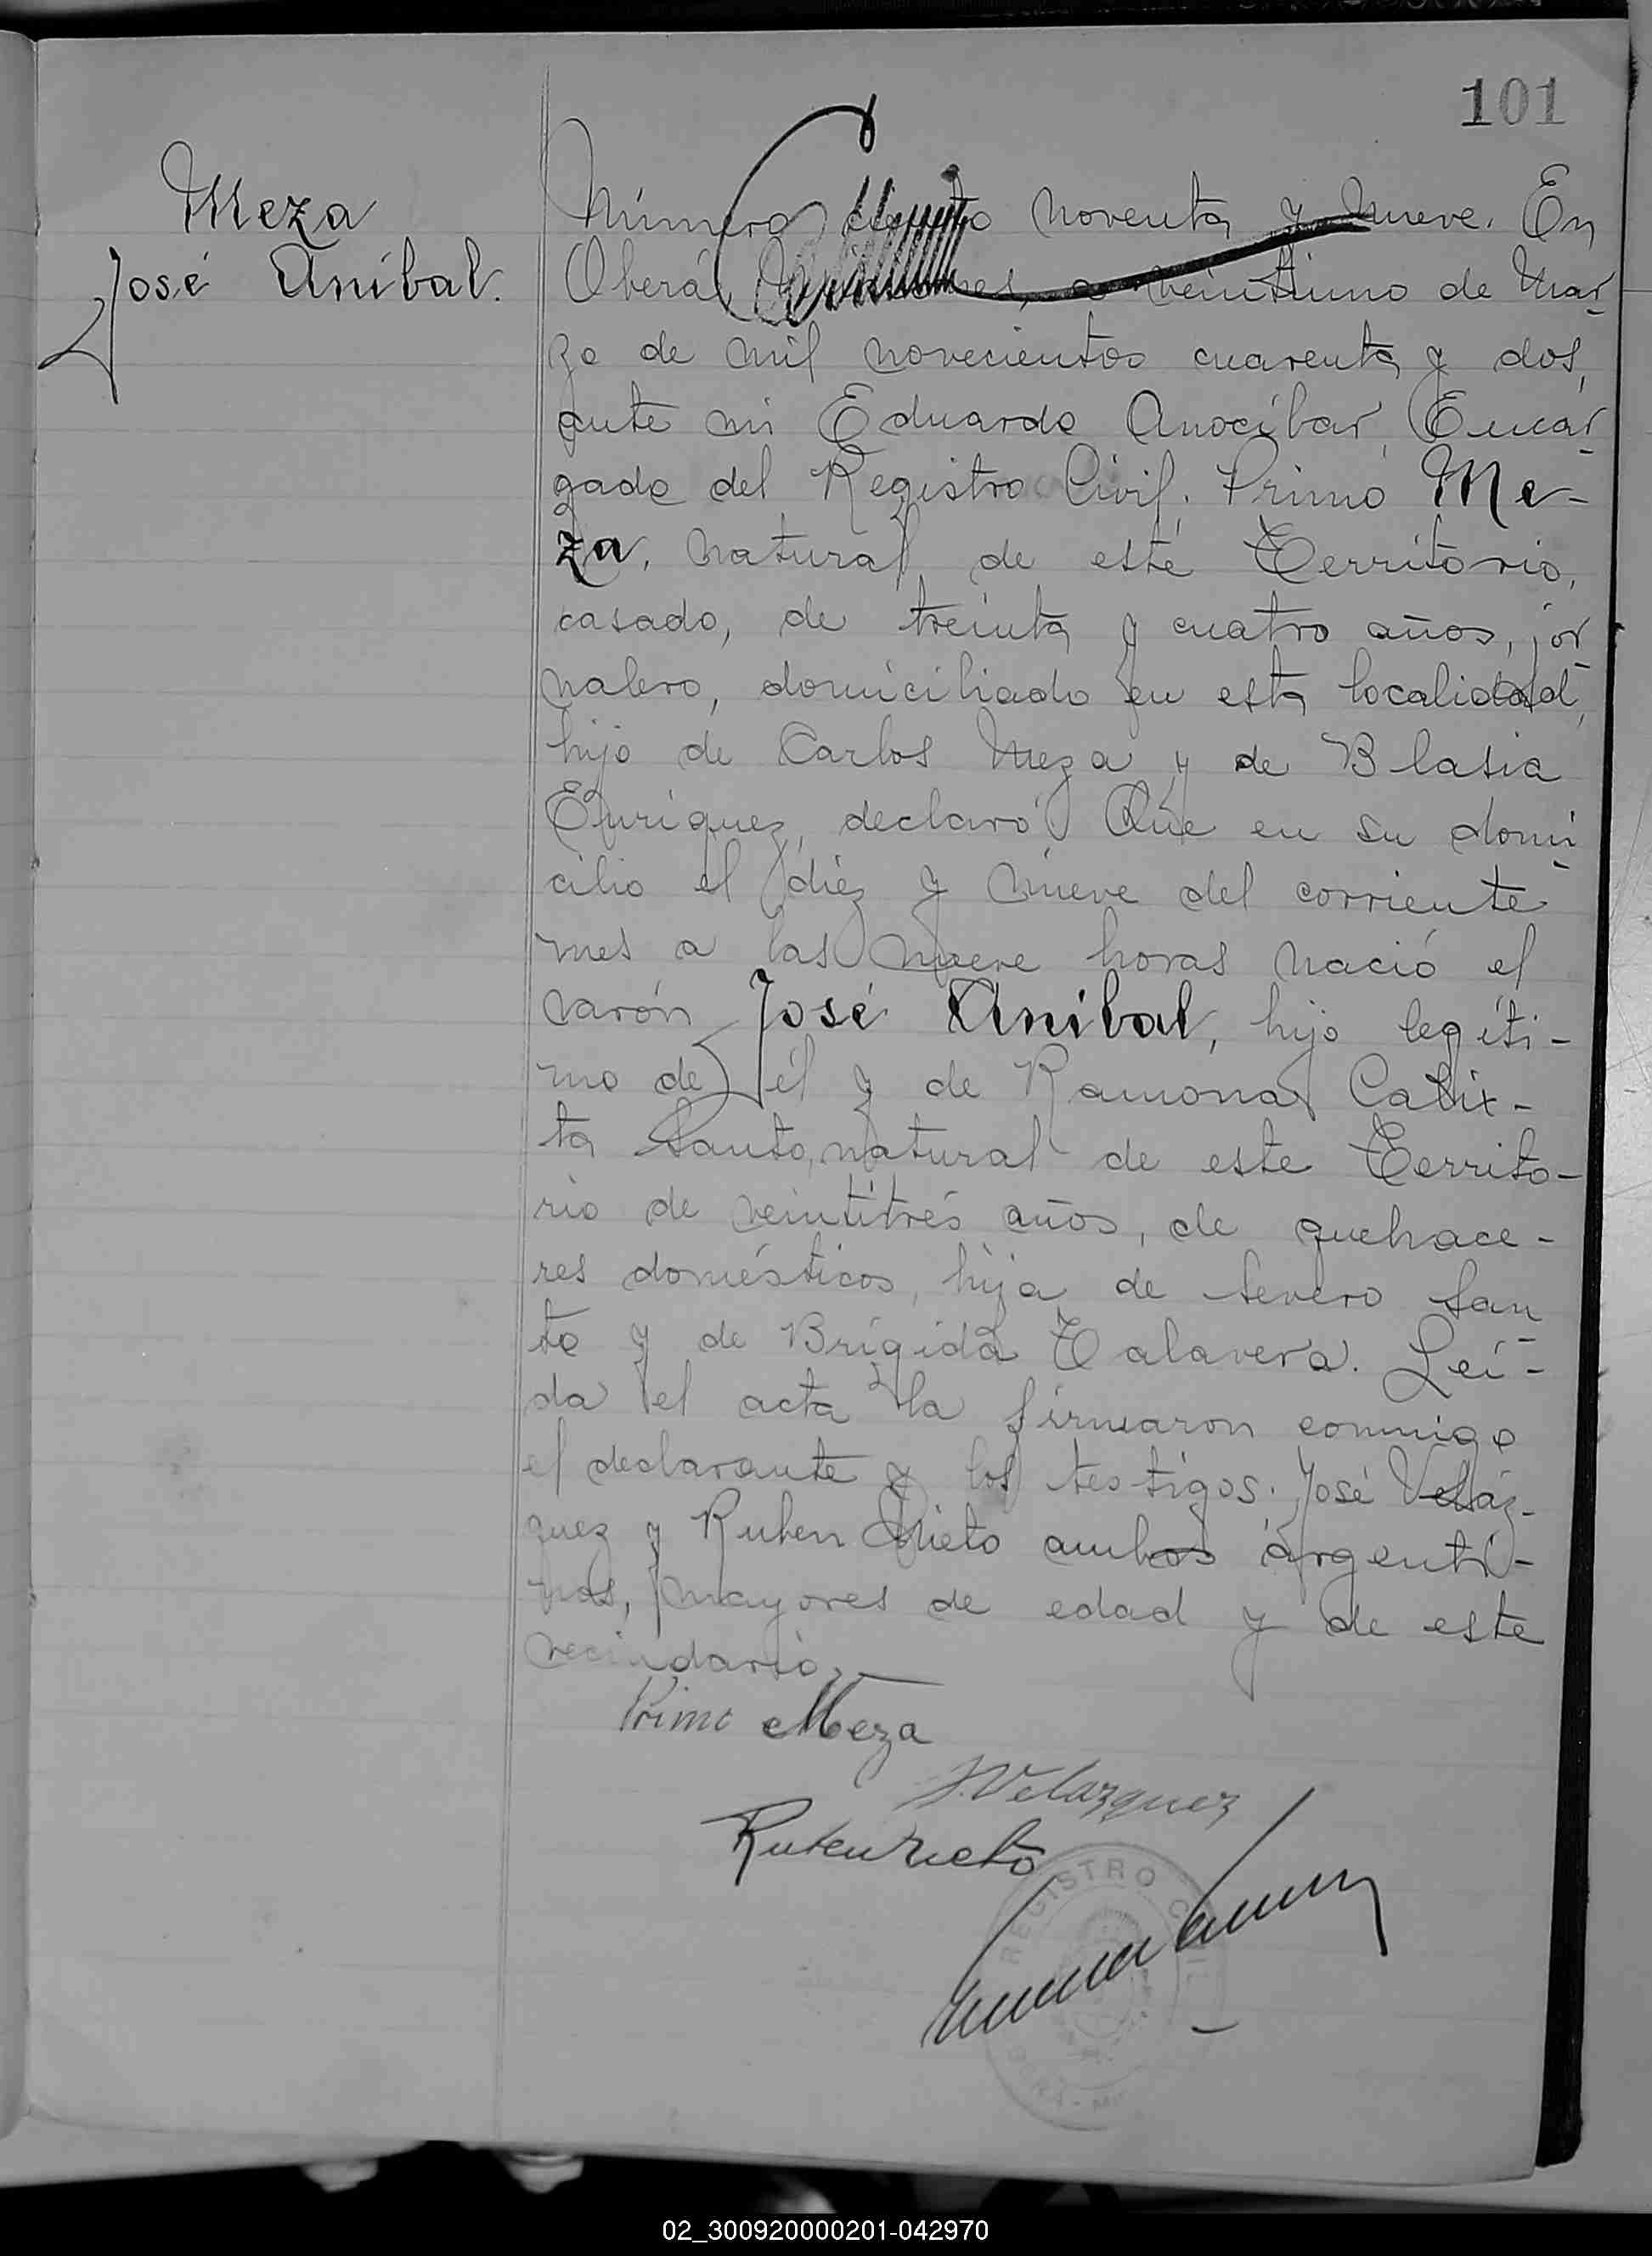 101
Meza
José Aníbal.
Número ciento noventa y nueve. En
Oberá, Misiones, a veintiuno de Mar-
zo de mil novecientos cuarenta y dos,
ante mi Eduardo Anocíbar, Encar-
gado del Registro Civil. Primo Me-
za, natural de este Territorio,
casado, de treinta y cuatro años, jor-
nalero, domiciliado en esta localidad,
hijo de Carlos Meza y de Blasia
Enriquez, declaró: Que en su domi-
cilio el diez y nueve del corriente
mes a las nueve horas nació el
varón José Aníbal, hijo legíti-
mo de él y de Ramona Calix-
ta Santo, natural de este Territo-
rio de veintitrés años, de quehace-
res domésticos, hija de Severo San-
to y de Brígida Talavera. Leí-
da el acta la firmaron conmigo
el declarante y los testigos. José Veláz-
quez y Ruben Nieto ambos argenti-
nos, mayores de edad y de este
vecindario.
Primo Meza
J. Velazquez
Ruben Nieto
REGISTRO CIVIL
02_300920000201-042970